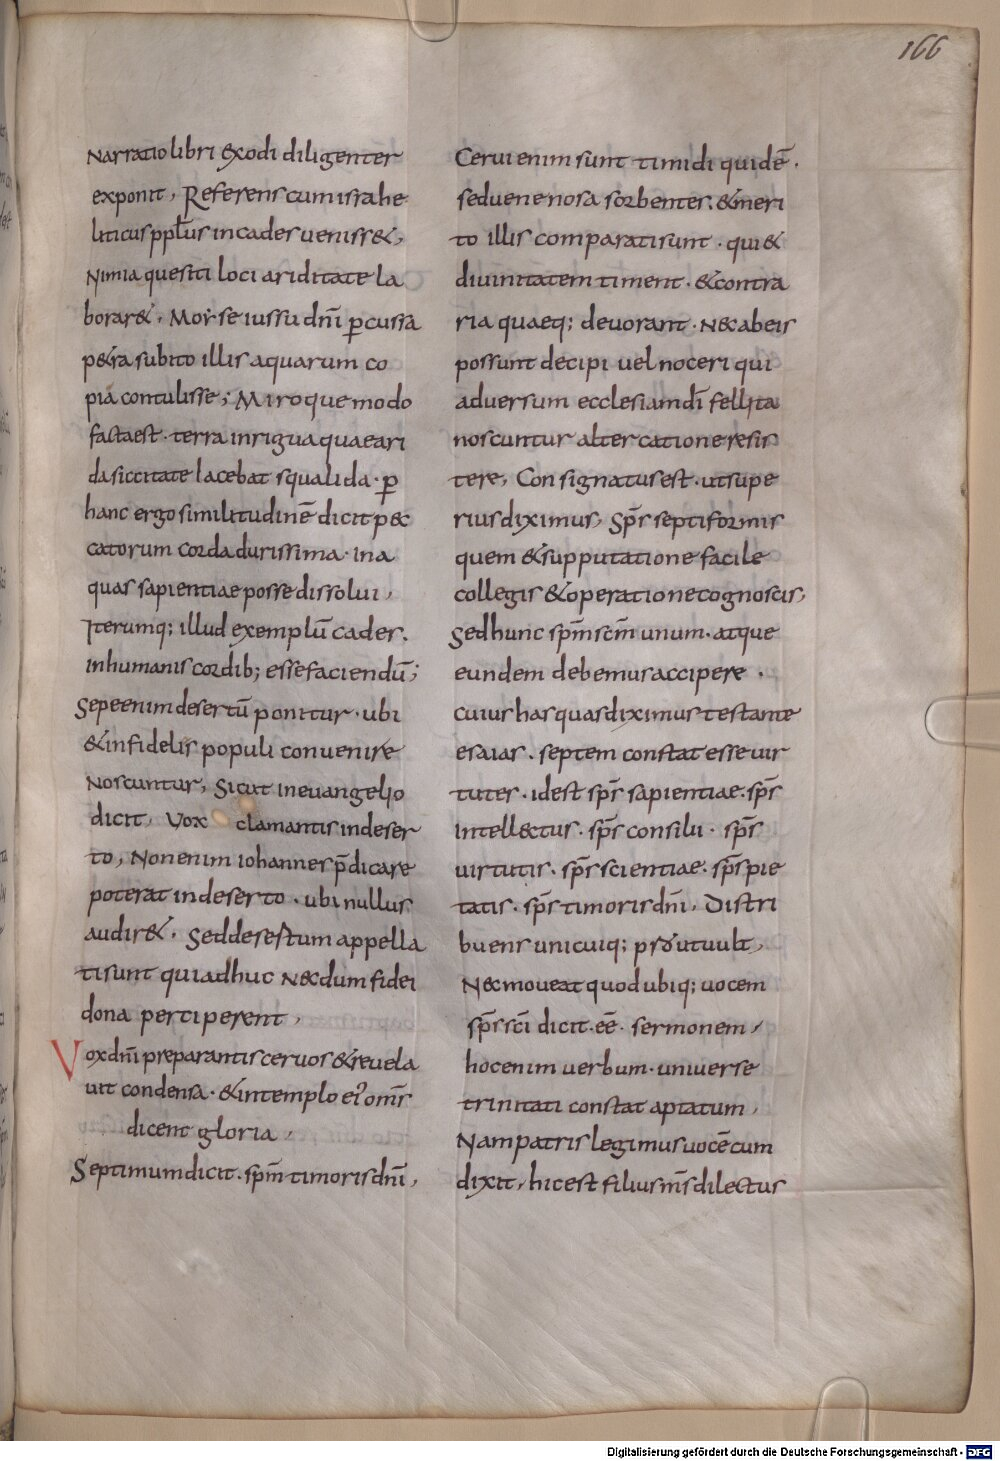 166
Narratio libri exodi diligenter
exponit, Referens cum israhe
liticus pplus in cades uenisset,
Nimia questi loci ariditate la
borar&. Moyse iussu dnī ꝑcussa
p&ra subito illis aquarum co
pia contulisse; Miroque modo
facta est. terra inrigua quae ari
da siccitate iacebat squalida. ꝑ
hanc ergo similitudinē dicit pec
catorum corda durissima. in a
quas sapientiae posse dissolui,
Iterumq; illud exemplū cades.
in humanis cordib; esse faciendū;
Sepe enim desertū ponitur. ubi
& infidelis populi conuenire
Noscuntur, Sicut in euangelio
dicit, Vox clamantis in deser
to, Non enim iohannes p̄dicare
poterat in deserto. ubi nullus
audir&. Sed desertum appella
ti sunt qui adhuc necdum fidei
dona perciperent,
Vox dnī preparantis ceruos & reuela
uit condensa. & in templo ei' omīs
dicent gloria,
Septimum dicit. spm̄ timoris dnī,
Cerui enim sunt timidi quidē.
sed uenenosa sorbentes. & meri
to illis comparati sunt. qui &
diuinitatem timent. & contra
ria quaeq; deuorant. Nec ab eis
possunt decipi uel noceri qui
aduersum ecclesiam dī fellita
noscuntur altercatione resis
tere, Consignatus est. ut supe
rius diximus, Sps̄ septiformis
quem & supputatione facile
collegis & operatione cognoscis,
Sed hunc spm̄ scm̄ unum. atque
eundem debemus accipere.
cuius has quas diximus testante
esaias. septem constat esse uir
tutes. id est sps̄ sapientiae. sps̄
intellectus. sps̄ consilii. sps̄
uirtutis. sps̄ scientiae. sps̄ pie
tatis. sps̄ timoris dnī, Distri
buens unicuiq; prout uult,
Nec moueat quod ubiq; uocem
sps̄ scī dicit. eē. sermonem,
hoc enim uerbum. uniuerse
trinitati constat aptatum,
Nam patris legimus uocē cum
dixit, hic est filius ms̄ dilectus
Digitalisierung gefördert durch die Deutsche Forschungsgemeinschaft - DFG